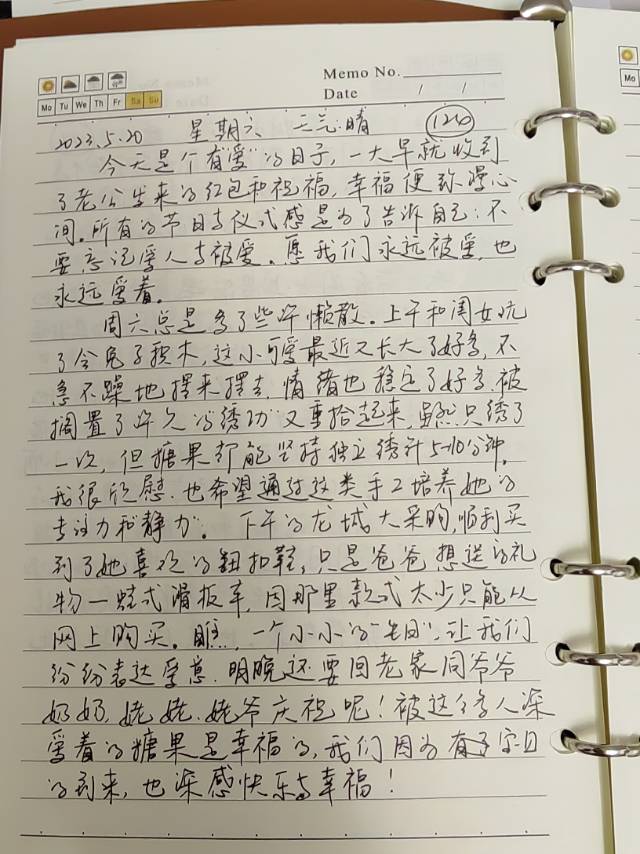 Memo No.
Date / /
Mo Tu We Th Fr Sa Su
Mo
2023.5.20 星期六 晴 1240
今天是个有"爱"的日子,一大早就收到
了老公生来的红包和祝福,幸福便弥漫心
间。所有的节日与仪式感是为了告诉自己:不
要忘记爱人与被爱。愿我们永远被爱,也
永远爱着。
周六总是多了些许懒散。上午和闺女玩
了会兔子积木,这小可爱最近又长大了好多,不
急不躁地摆来摆去,情绪也稳定了好多,被
搁置了许久的"绣功"又重拾起来,虽然只绣了
一次,但糖果却能坚持独立绣计5-10分钟,
我很欣慰,也希望通过这类手工培养她的
专注力和"静力"。下午的龙城大采购,顺利买
到了她喜欢的鞋,只是爸爸想送的礼
物一蛙式滑板车,因那里款式太少只能从
网上购买。瞧,一个小小的"生日",让我们
纷纷表达爱意,明晚还要回老家同爷爷
奶奶,姥姥,姥爷庆祝呢!被这么多人深
爱着的糖果是幸福的,我们因为有字日
的到来,也深感快乐与幸福!